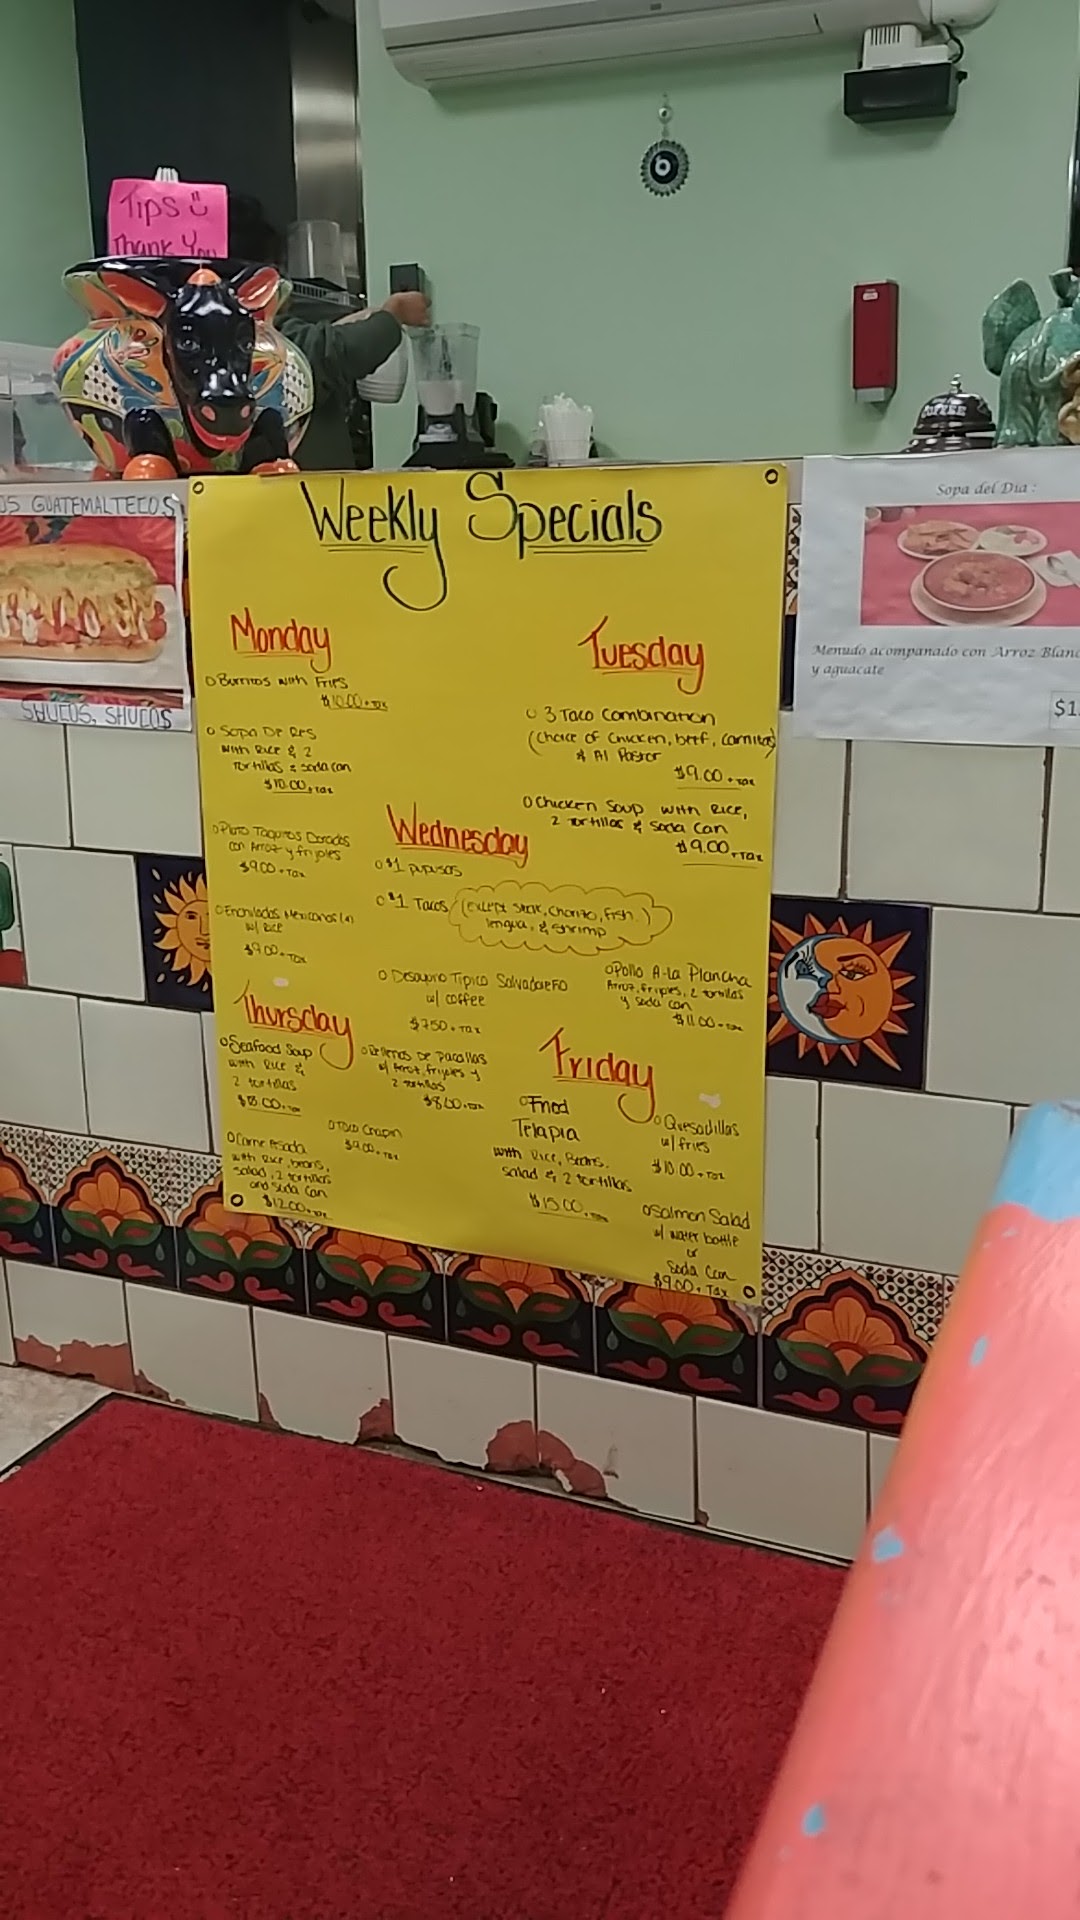 Tips
Thank You
COFFEE
OS GUATEMALTECOS
SHUCOS, SHUCOS
Sopa del Dia :
Menudo acompanado con Arroz Blanc
y aguacate
$1
Weekly Specials
Monday
Burritos with Fries
$10.00 + Tax
Sopa De Res
with Rice & 2
Tortillas & soda can
$10.00 + Tax
Plato Taquitos Dorados
con Arroz y frijoles
$9.00 + Tax
Enchiladas Mexicanas (4)
w/ Rice
$9.00 + Tax
Tuesday
3 Taco Combination
(Choice of Chicken, beef, Carnitas)
& Al Pastor
$9.00 + Tax
Chicken Soup with Rice,
2 Tortillas & Soda Can
$9.00 + Tax
Wednesday
$1 Pupusas
$1 Tacos (Except Steak, Chorizo, Fish,)
lengua, & shrimp
Desayuno Tipico Salvadoreño
w/ coffee
$7.50 + Tax
Pollo A-La Plancha
Arroz, frijoles, 2 tortillas
y soda can
$11.00 + Tax
Thursday
Seafood Soup
with Rice &
2 tortillas
+ Tax
Rellenos De Pacallas
w/ Arroz, frijoles y
2 tortillas
+ Tax
Taco Chapin
$9.00 + Tax
Carne Asada
with Rice, beans,
salad, 2 tortillas
and Soda Can
$12.00 + Tax
Friday
Fried
Telapia
with Rice, Beans,
salad & 2 tortillas
$15.00 + Tax
Quesadillas
w/ fries
$10.00 + Tax
Salmon Salad
w/ water bottle
or
Soda Can
$9.00 + Tax